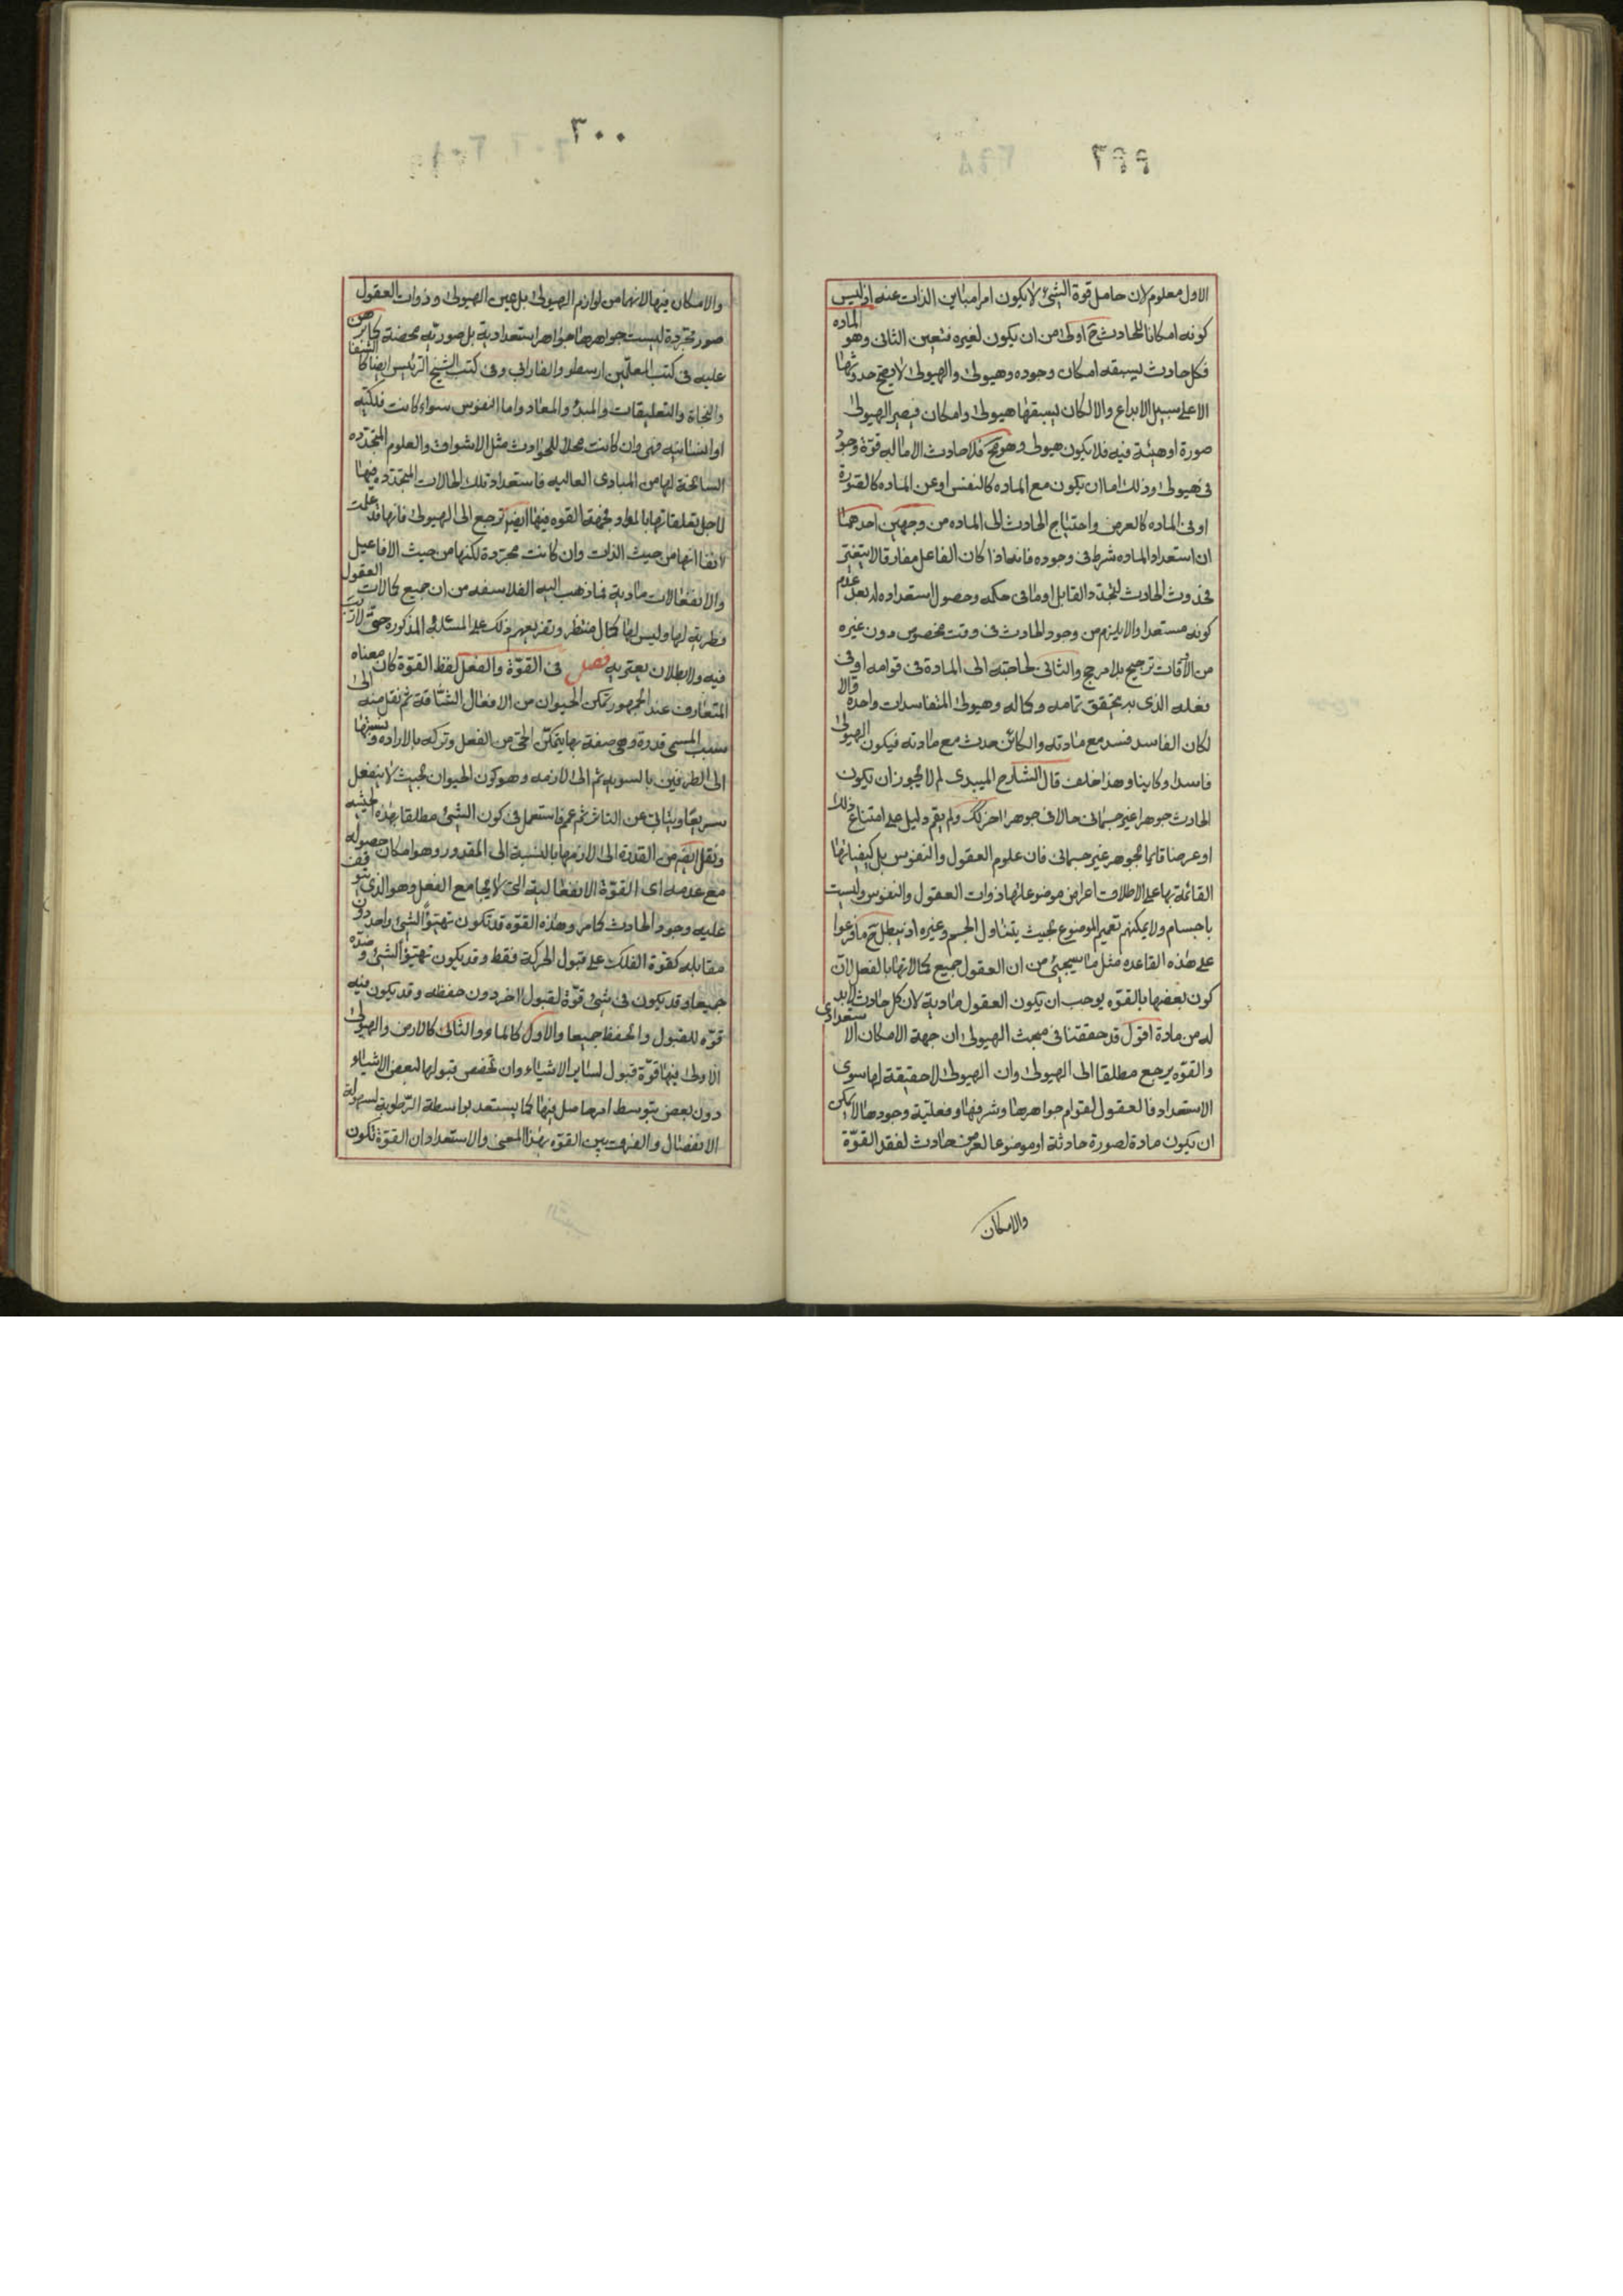 ٢٩٩
الاول معلوم لان حامل قوة الشئ لا يكون امرا مباين الذات عنه اذ ليس
كونه امكانا للحادث ح اولى من ان يكون لغيره فتعين الثانى وهو الماده
فكل حادث يسبقه امكان وجوده وهيولى والهيولى لا يصح حدوثها
الا على سبيل الابداع والا لكان يسبقها هيولى وامكان فيصير الهيولى
صورة او هيئة فيه فلا يكون هيولى وهو مح فلا حادث الا ماله قوة وجود
فى هيولى وذلك اما ان يكون مع الماده كالنفس او عن الماده كالصورة
او فى الماده كالعرض واحتياج الحادث الى الماده من وجهين احدهما
ان استعداد الماده شرط فى وجوده فانه اذا كان الفاعل مفارقا لا يتغير
فحدوث الحادث لتجدد القابل او ما فى حكمه وحصول استعداده له بعد عدم
كونه مستعدا والا يلزم من وجود الحادث فى وقت مخصوص دون غيره
من الاوقات ترجيح بلا مرجح والثانى لحاجته الى المادة فى قوامه او فى
فعله الذى به يتحقق تمامه وكماله وهيولى المتفاسدات واحدة والا
لكان الفاسد فسد مع مادته والكائن حدث مع مادته فيكون الهيولى
فاسدا وكاينا وهذا خلف قال الشارح الميبدى لم لا يجوز ان يكون
الحادث جوهرا غير جسمانى حالا فى جوهر اخر كك ولم يقم دليل على امتناع ذلك
او عرضا قايما بجوهر غير جسمانى فان علوم العقول والنفوس بل كيفياتها
القائمة بها على الاطلاق اعراض موضوعاتها ذوات العقول والنفوس وليست
باجسام ولا يمكنهم تعميم الموضوع بحيث يتناول الجسم وغيره اذ يبطل ح ما فرعوا
على هذه القاعده مثل ما سيجيئ من ان العقول جميع كمالاتها بالفعل لان
كون بعضها بالقوه يوجب ان يكون العقول مادية لان كل حادث لابد
له من مادة اقول قد حققنا فى مبحث الهيولى ان جهة الامكان الاستعدادى
والقوه يرجع مطلقا الى الهيولى وان الهيولى لا حقيقة لها سوى
الاستعداد فالعقول لقوام جواهرها وشرفها وفعلية وجودها لا يمكن
ان يكون مادة لصورة حادثة او موضوعا لعرض حادث لفقد القوة
والامكان
٣٠٠
والامكان فيها لانهما من لوازم الهيولى بل عين الهيولى وذوات العقول
صور مجردة ليست جواهرها جواهر استعدادية بل صوريه محضة كما برهن
عليه فى كتب المعلمين ارسطو والفارابى وفى كتب الشيخ الرئيس ايضا كالشفا
والنجاة والتعليقات والمبدء والمعاد واما النفوس سواء كانت فلكيه
او انسانيه فهى وان كانت محلا للحوادث مثل الاشواق والعلوم المتجدده
السانحة لها من المبادى العاليه فاستعداد تلك الحالات المتجدده فيها
لاجل تعلقاتها بالمواد فجهة القوه فيها ايضا ترجع الى الهيولى فانها قد علمت
انفا انها من حيث الذات وان كانت مجردة لكنها من حيث الافاعيل
والانفعالات مادية فما ذهب اليه الفلاسفه من ان جميع كمالات العقول
فطرية لها وليس لها كمال منتظر وتفريعهم ذلك على المسئله المذكوره حق لا ريب
فيه ولا بطلان يعتريه فصل فى القوة والفعل لفظ القوة كان معناه
المتعارف عند الجمهور تمكن الحيوان من الافعال الشاقة ثم نقل منه الى
سببه المسمى قدرة وهى صفة بها يتمكن الحى من الفعل وتركه بالاراده ونسبتها
الى الطرفين بالسويه ثم الى لازمه وهو كون الحيوان بحيث لا ينفعل
سريعا ويتابى عن التاثر ثم عمم فاستعمل فى كون الشئ مطلقا بهذه الحيثيه
ونقل ايضا من القدرة الى لازمها بالنسبة الى المقدور وهو امكان حصوله
مع عدمه اى القوة الانفعالية التى لا يجامع الفعل وهو الذى يتوقف
عليه وجود الحادث كما مر وهذه القوه قد تكون تهيؤا لشئ واحد دون
مقابله كقوة الفلك على قبول الحركة فقط وقد يكون تهيؤا لشئ وضده
جميعا وقد يكون فى شئ قوة لقبول اخر دون حفظه وقد يكون فيه
قوه للقبول والحفظ جميعا والاول كالماء والثانى كالارض والهيولى
الاولى فيها قوة قبول لساير الاشياء وان تخصص بقبولها لبعض الاشياء
دون بعض بتوسط امر حاصل فيها كما يستعد بواسطة الرطوبة لسهولة
الانفصال والفرق بين القوه بهذا المعنى والاستعداد ان القوة تكون